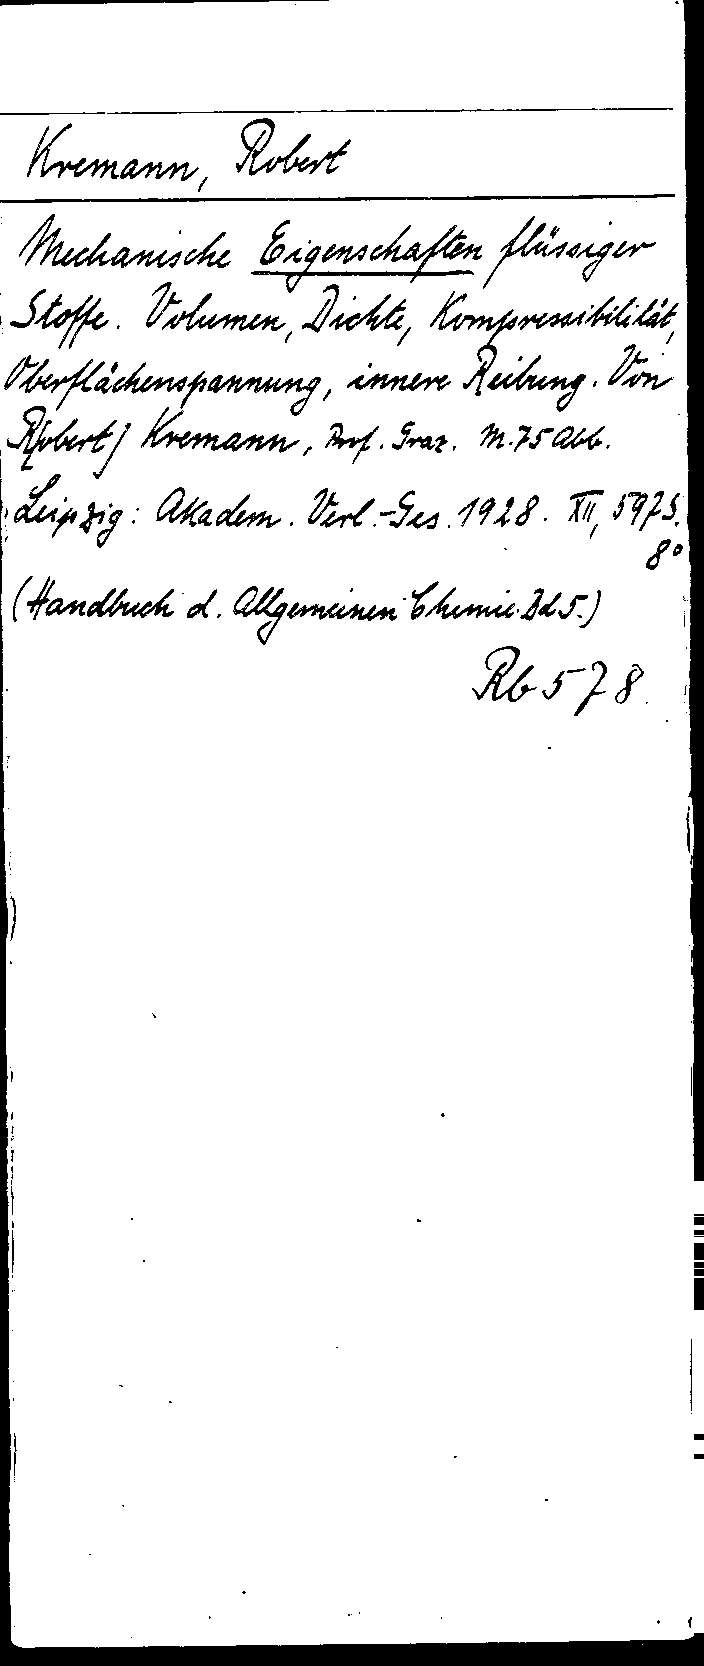 Kremann, Robert
Mechanische Eigenschaften flüssiger
Stoffe. Volumen, Dichte, Kompressibilität,
Oberflächenspannung, innere Reibung. Von
R[obert] Kremann, Prof. Graz. M. 75 Abb.
Leipzig: Akadem. Verl.-Ges. 1928. XII, 597 S.
8°
(Handbuch d. Allgemeinen Chemie. Bd 5.)
Rb 578